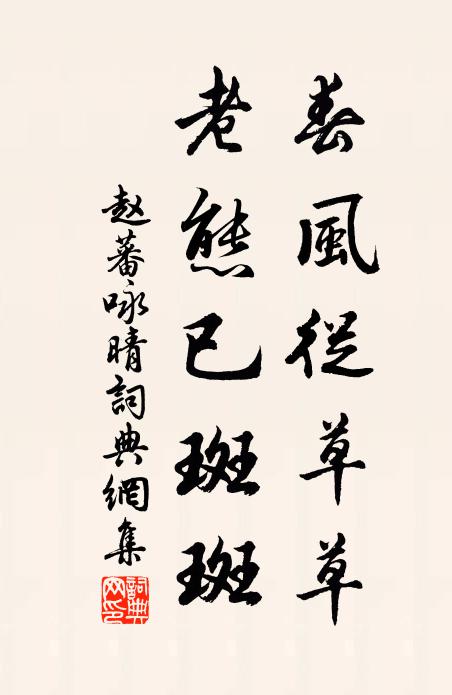 春風從草草
老態已斑斑
赵蕃咏晴詞典網集
詞典網印